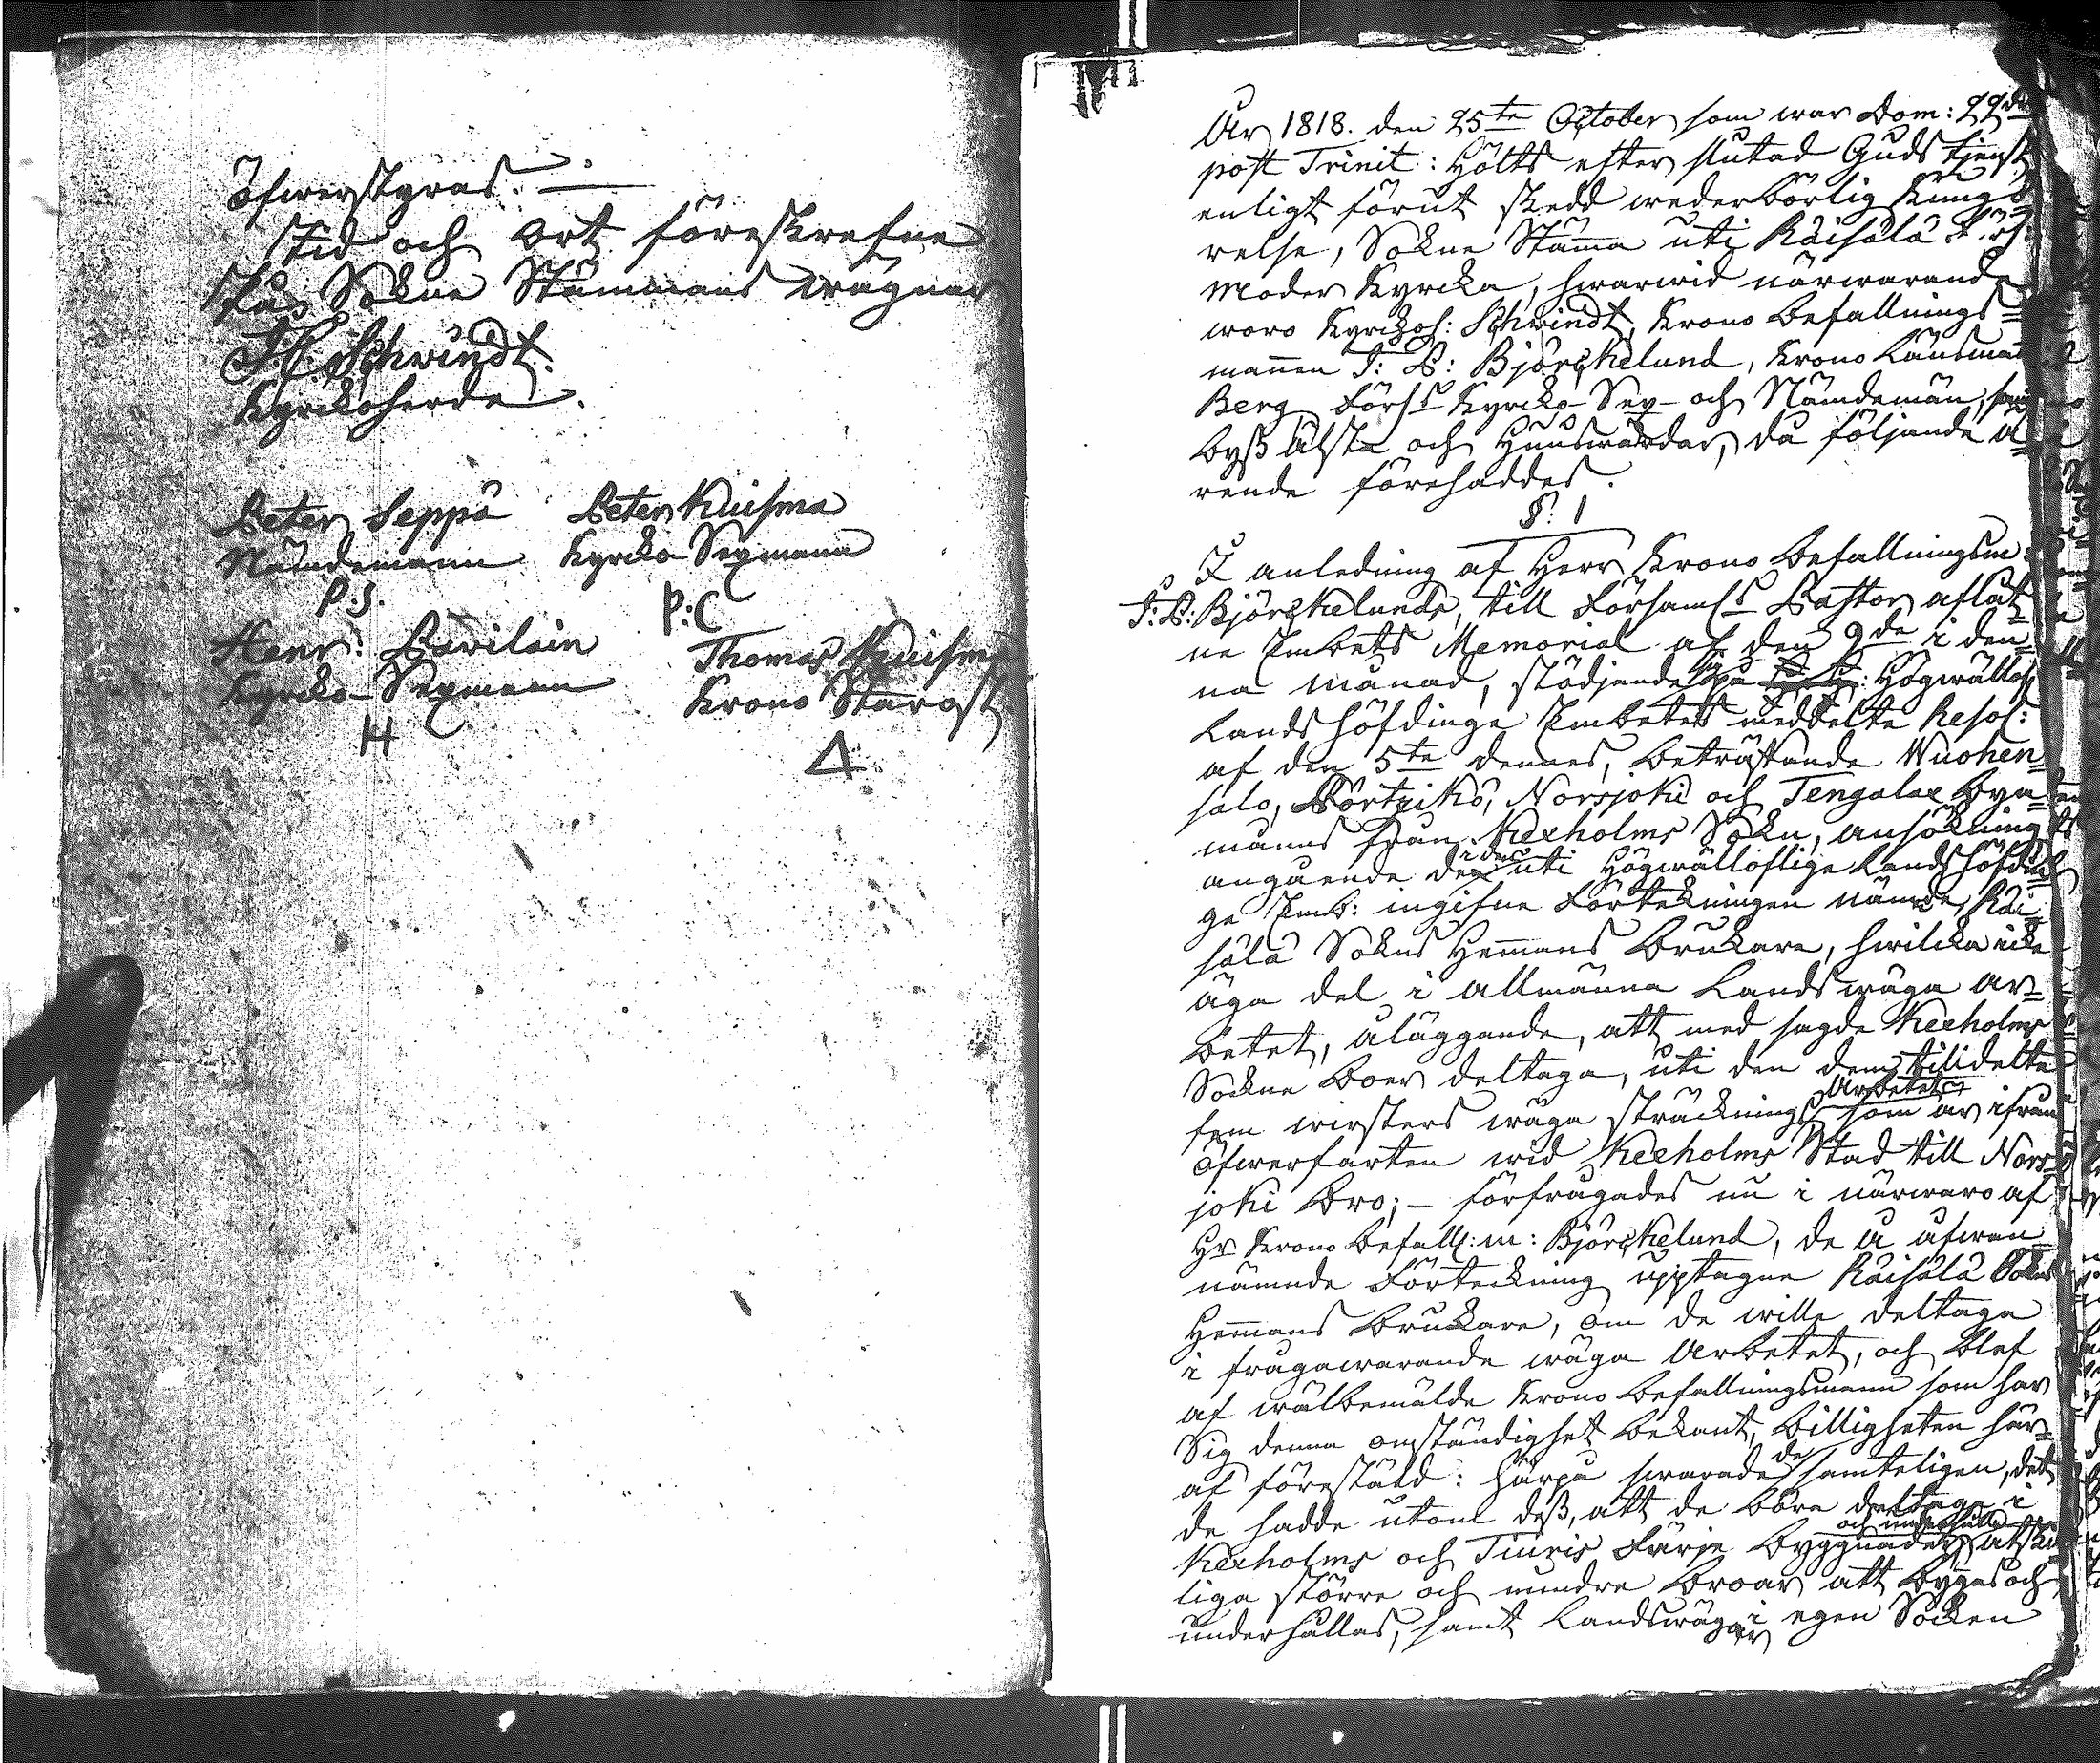 öfwerstyras.
Tid och Ort föreskrefne
På Sokne Stämmans wägnar
J: C: Schwindt.
Kyrckoherde.
Peter Seppä Peter Kuisma
Nämdeman Kyrcko Sexman
P: S. P: C
Henr: Pavilain Thomas Kuisma
Kyrcko Sexman Krono Starost
H Δ
År 1818. den 25te October som war Dom: 22de
post Trinit: Hölts efter slutad Guds tjenst
enligt förut skedd wederbörlig Kungö=
relse, Sokne Stäma uti Räisälä Förs:
Moder Kyrcka, hwarwid närwarande
woro Kyrckoh: Schwindt, Krono Befallnings=
mannen J: P: Björckelund, Krono Länsman
Berg, Förs:s Kyrcko Sex- och Nämdemän, samt
byß Älsta och Huuswärdar, då följande ä=
rende förehaddes.
§: 1
I anledning af Herr Krono Befallningsm:
J: P: Björckelunds, till Församl:s Pastor aflåt=
ne Embets Memorial af den 9de i den=
na månad, stödjande sig på Högwällofl:
Lands höfdinge Embetets meddelte Resol:
af den 5te dennes, beträffande Wuohen=
salo, Pörtzikö, Norsjoki och Tengalax Bya=
mäns från Kexholms Sokn, ansökning
angående de i den uti Högwälloflige Lands höfdin=
ge Emb: ingifne Förtekningen nämde Räi=
sälä Sokns Hemans Brukare, hwilcka icke
äga del i allmänna Lands wäga ar=
betet, åläggande, att med sagde Kexholms
Sockne Boer deltaga, uti den dem tilldelte
fem wersters wäga sträcknings Arbetet som är ifrån
öfwerfarten wid Kexholms Stad till Nors=
joki Bro; – förfrågades nu i närwaro af
Hr Krono Befall:m: Björckelund, de å ofwan
nämnde Förteckning upptagne Räisälä Sokns
Hemans Bruckare, om de wille deltaga
i frågawarande wäga Arbetet, och blef
af wälbemälde Krono Befallningsmann som har
Sig denna omständighet bekant, billigheten här=
af förestäld: härpå swarade de samteligen, det
de hadde utom deß, att de böra deltaga i
Kexholms och Tiuris Färje byggnaders och underhålle åtski=
liga större och mindre broar att byggas och
underhållas, samt Landswägar i egen Socken